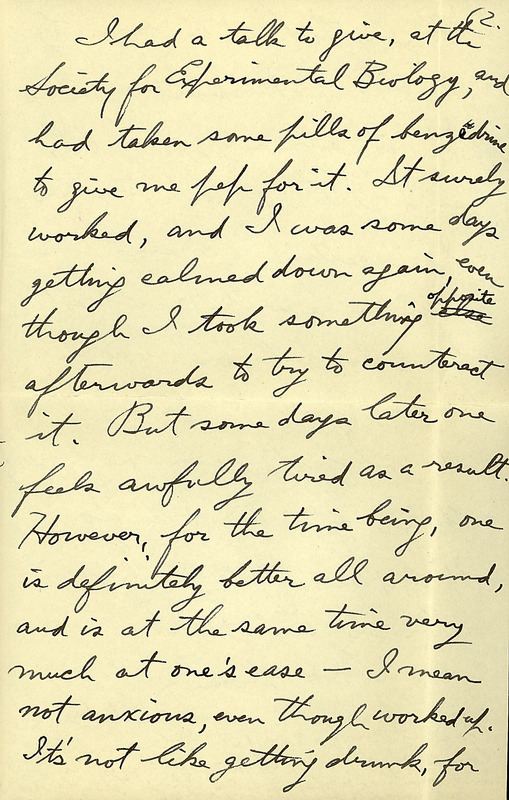 62.
I had a talk to give, at the
Society for Experimental Biology, and
had taken some pills of benzedrine
to give me pep for it. It surely
worked, and I was some days
getting calmed down again, even
though I took something else opposite
afterwards to try to counteract
it. But some days later one
feels awfully tired as a result.
However, for the time being, one
is definitely better all around,
and is at the same time very
much at one's ease — I mean
not anxious, even though worked up.
It's not like getting drunk, for